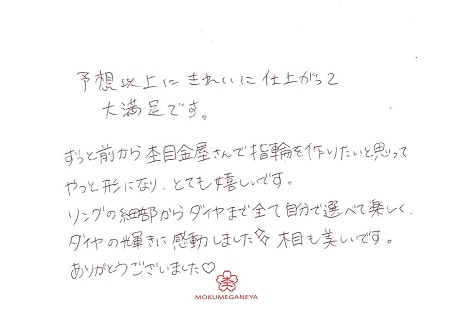 予想以上にきれいに仕上がって
大満足です。
ずっと前から杢目金屋さんで指輪を作りたいと思って
やっと形になり、とても嬉しいです。
リングの細部からダイヤまで全て自分で選べて楽しく、
ダイヤの輝きに感動しました✨ 木目も美しいです。
ありがとうございました♡
MOKUMEGANEYA